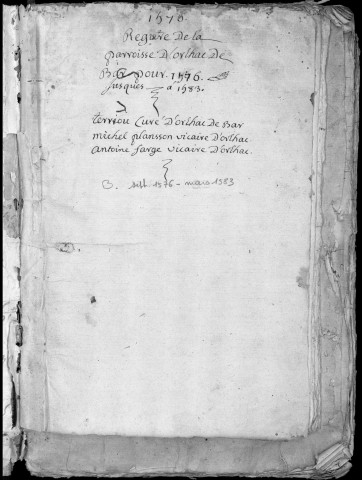 1576
Registre De la
parroisse D'orlhac De
Bar pour 1576.
Jusques a 1583.
terriou Curé D'orlhac De Bar
michel plansson vicaire D'orlhac
antoine farge vicaire D'orlhac.
B. 1576 - mars 1583